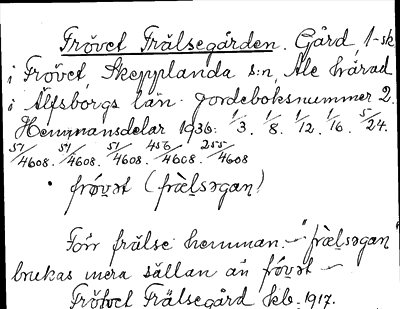 Frövet Frälsegården. Gård, 1-sk
i Frövet, Skepplanda s:n, Ale härad
i Älfsborgs län. Jordeboksnummer 2.
Hemmansdelar 1936: 1/3. 1/8. 1/12. 1/16. 5/24.
51/4608. 51/4608. 51/4608. 456/4608. 255/4608
frǿvət (frælsəgaṇ)
Förr frälse hemman. – "frælsəgaṇ"
brukas mera sällan än frǿvət –
Frötvet Frälsegård kb. 1917.